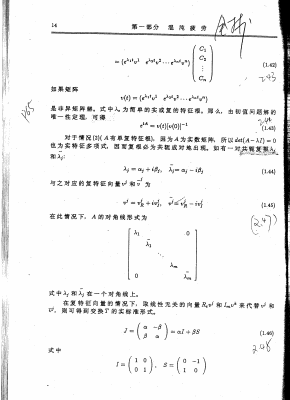 14 第一部分 混沌疲劳
= (e^{λ₁t}v¹ e^{λ₂t}v² ⋯ e^{λₙt}vⁿ) (C₁ C₂ ⋮ Cₙ) (1.42)
2.43
如果矩阵
v(t) = (e^{λ₁t}v¹ e^{λ₂t}v² ⋯ e^{λₙt}vⁿ)
是非异矩阵解。式中λᵢ为简单的实或复的特征根。那么，由初值问题解的
唯一性定理，可得
e^{tA} = v(t)[v(0)]⁻¹ (1.43)
对于情况(2)(A有单复特征根)，因为A为实数矩阵，所以det(A−λI)=0
也为实特征多项式，因而复根必为共轭成对地出现。如有一对共轭复根λⱼ
和λ̄ⱼ:
λⱼ = αⱼ + iβⱼ, λ̄ⱼ = αⱼ − iβⱼ (1.44)
与之对应的复特征向量vʲ和v̄ʲ为
vʲ = vʲ_R + ivʲ_I, v̄ʲ = vʲ_R − ivʲ_I (1.45)
在此情况下，A的对角线形式为
(2.47)
λ₁ 0
λ̄₁
⋱
λₘ
0 λ̄ₘ
式中λⱼ和λ̄ⱼ在一个对角线上。
在复特征向量的情况下，取线性无关的向量Rₑvʲ和Iₘvᵏ来代替vʲ和
v̄ʲ，则可得到变换T的实标准形式。
J = (α −β β α) = αI + βS (1.46)
2.48
式中
I = (1 0 0 1), S = (0 −1 1 0)